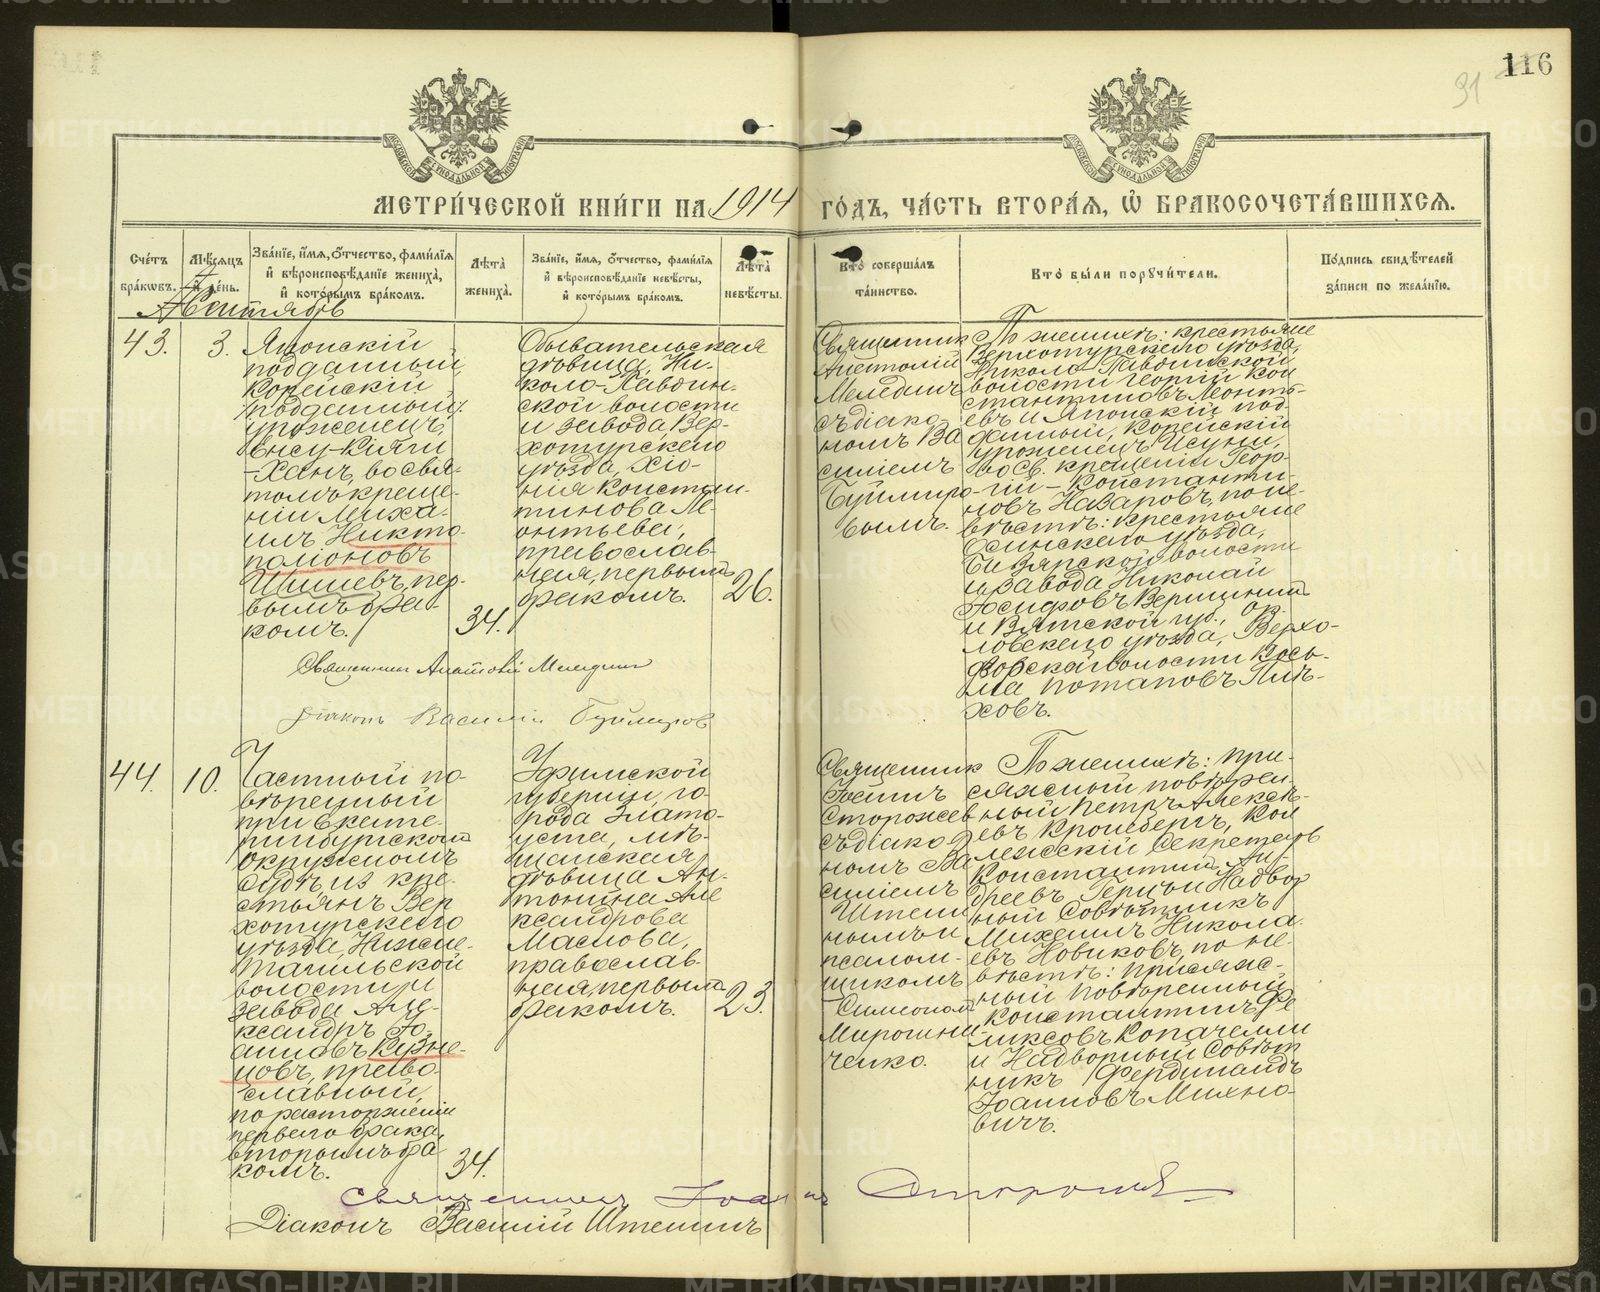 116
91
МОСКОВСКОЙ СѴНОДАЛЬНОЙ ТИПОГРАФІИ
МОСКОВСКОЙ СѴНОДАЛЬНОЙ ТИПОГРАФІИ
МЕТРИ́ЧЕСКОЙ КНИ́ГИ НА 1914 ГО́ДЪ, ЧА́СТЬ ВТОРА́Я, Ѡ҆ БРАКОСОЧЕТА́ВШИХСЯ.
Сче́тъ
бра́кѡвъ.
Мѣ́сяцъ
и҆ де́нь.
Зва́нїе, и҆́мя, ѻ҆́тчество, фами́лїя
и҆ вѣроисповѣ́данїе жениха̀,
и҆ кото́рымъ бра́комъ.
Лѣта̀
жениха̀.
Зва́нїе, и҆́мя, ѻ҆́тчество, фами́лїя
и҆ вѣроисповѣ́данїе невѣ́сты,
и҆ кото́рымъ бра́комъ.
Лѣта̀
невѣ́сты.
Кто̀ соверша́лъ
та́инство.
Кто̀ бы́ли порꙋчи́тели.
По́дпись свидѣ́телей
за́писи по жела́нїю.
Сентябрь
43.
3.
Японскій
подданный,
Корейскій
подданный
уроженецъ
-Ханъ, во свя-
томъ креще-
ніи Миха-
илъ Никто-
поліоновъ
Шишевъ, пер-
вымъ бра-
комъ.
34.
Обывательская
дѣвица, Ни-
коло-Павдин-
ской волости
и завода Вер-
хотурскаго
уѣзда, Хіо-
нія Констан-
тинова Ле-
онтьева,
православ-
ная, первымъ
бракомъ.
26.
Священник
Анатолій
Меледин
съ діако-
номъ Ва
силіемъ
Буймиро-
вымъ.
По женихѣ: крестьяне
Верхотурскаго уѣзда,
Николо-Павдинской
волости Георгій Кон
стантиновъ Леонть-
евъ и Японскій под-
данный, Корейскій
уроженец
во св. крещеніи Геор-
гій - Константи-
новъ Назаровъ, по не-
вѣстѣ: крестьяне
Осинскаго уѣзда,
Бизярской волости
и завода Николай
Іосифовъ Вершинин
и Вятской губ., Ор-
ловскаго уѣзда, Верхо-
ворской волости Козь-
ма Потаповъ Плѣ-
ховъ.
Священник Анатолій Меледин
Діаконъ Василій Буймиров
44.
10.
Частный по-
вѣренный
при Екате-
ринбургском
Окружномъ
Судѣ, из кре-
стьянъ Вер
хотурскаго
уѣзда, Нижне-
Тагильской
волости и
завода Але-
ксандръ Іо-
анновъ Кузне-
цовъ, право-
славный,
по расторженіи
перваго брака,
вторымъ бра
комъ.
34.
Уфимской
губерніи, го-
рода Злато-
уста, мѣ-
щанская
дѣвица Ан-
тонина Але
ксандрова
Маслова,
православ-
ная, первым
бракомъ.
23.
Священник
Іоаннъ
Сторожев
съ діако-
номъ Ва
силіемъ
Штенни
нымъ и
псалом-
щикомъ
Симеоном
Мирошни-
ченко.
По женихѣ: при-
сяжный повѣрен-
ный Петръ Алексѣ-
евъ Кронебергъ, Кол
лежскій Секретарь
Константин Ан-
дреевъ
Надвор
ный Совѣтникъ
Михаилъ Никола-
евъ Новиковъ, по не-
вѣстѣ: присяж-
ный повѣренный
Константинъ Фе
ликсовъ Копачелли
и Надворный Совѣт
никъ Фердинандъ
Іоанновъ Михно-
вичъ.
Священник Іоаннъ Сторожев
Діаконъ Василій Штеннинъ